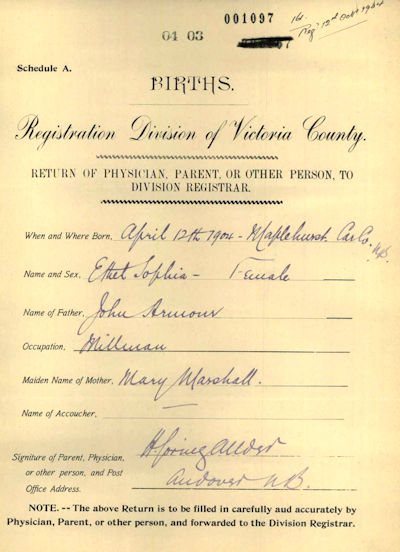 001097
04 03
Schedule A.
BIRTHS.
Registration Division of Victoria County.
RETURN OF PHYSICIAN, PARENT, OR OTHER PERSON, TO
DIVISION REGISTRAR.
When and Where Born, April 12th 1904 - Maplehurst Car Co. N.B.
Name and Sex, Ethel Sophia - Female
Name of Father, John Armour
Occupation, Millman
Maiden Name of Mother, Mary Marshall.
Name of Accoucher, —
Signiture of Parent, Physician,
or other person, and Post
Office Address. Andover N.B.
NOTE. -- The above Return is to be filled in carefully aud accurately by
Physician, Parent, or other person, and forwarded to the Division Registrar.